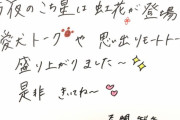 夜のこち星は虹花が登場
愛犬トークや思い出リモートトーク
盛り上がりました〜
是非 きいてね〜